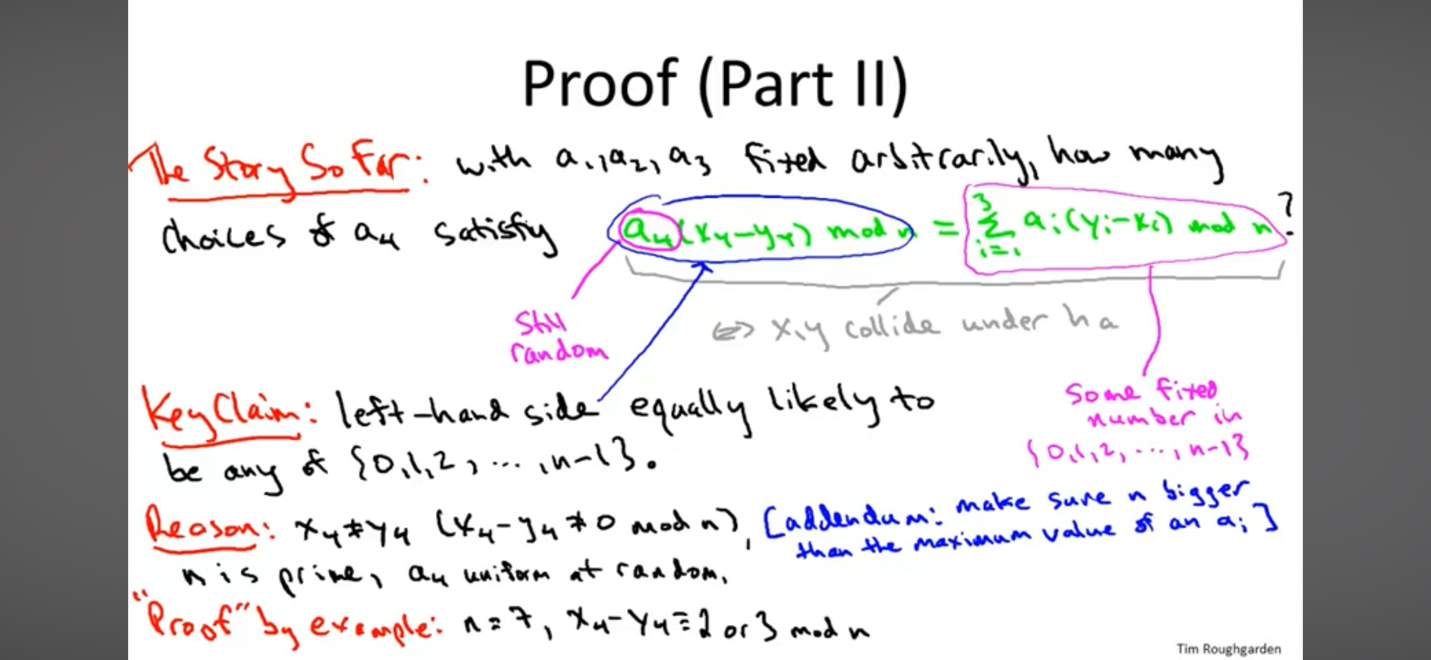 Proof (Part II)
The Story So Far: with a₁,a₂,a₃ fixed arbitrarily, how many
choices of a₄ satisfy a₄(x₄-y₄) mod n = 3 Σ i=1 aᵢ(yᵢ-xᵢ) mod n ?
Still
random
<=> x,y collide under hₐ
Key Claim: left-hand side equally likely to
be any of {0,1,2, ..., n-1}.
Some fixed
number in
{0,1,2, ..., n-1}
Reason: x₄≠y₄ (x₄-y₄≠0 mod n), [addendum: make sure n bigger
than the maximum value of an aᵢ]
n is prime, a₄ uniform at random.
"Proof" by example: n=7, x₄-y₄≡2 or 3 mod n
Tim Roughgarden